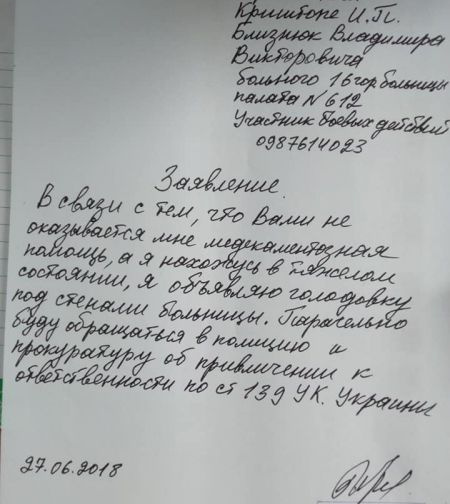 Криштопе И.П.
Близнюк Владимира
Викторовича
больного 16 гор больницы
палата N 612
Участник боевых действий
0987614023
Заявление.
В связи с тем, что Вами не
оказывается мне медекаментозная
помощь, а я нахожусь в тяжелом
состоянии, я объявляю голодовку
под стенами больницы. Паралельно
буду обращаться в полицию и
прокуратуру об привличении к
ответственности по ст 139 УК. Украины
27.06.2018